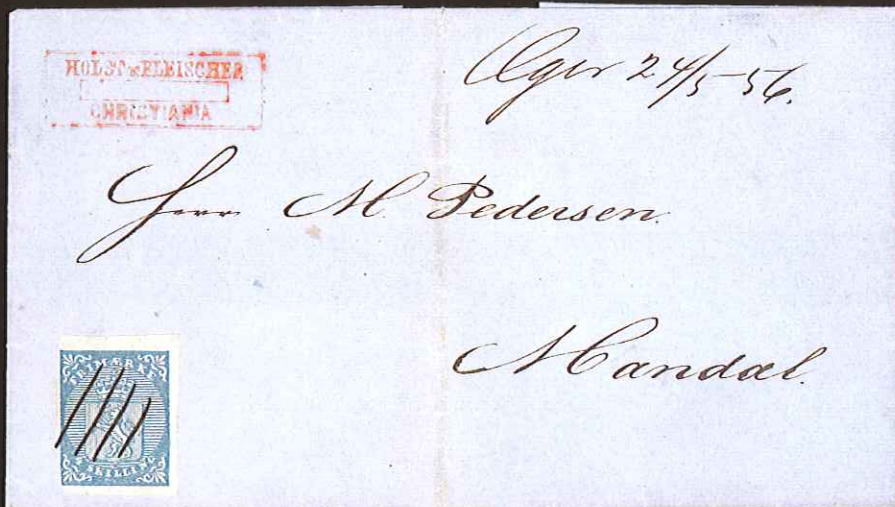 HOLST & FLEISCHER
CHRISTIANIA
Eger 24/5 56.
Herr M. Pedersen.
Mandal.
FRIMÆRKE
4 SKILLING